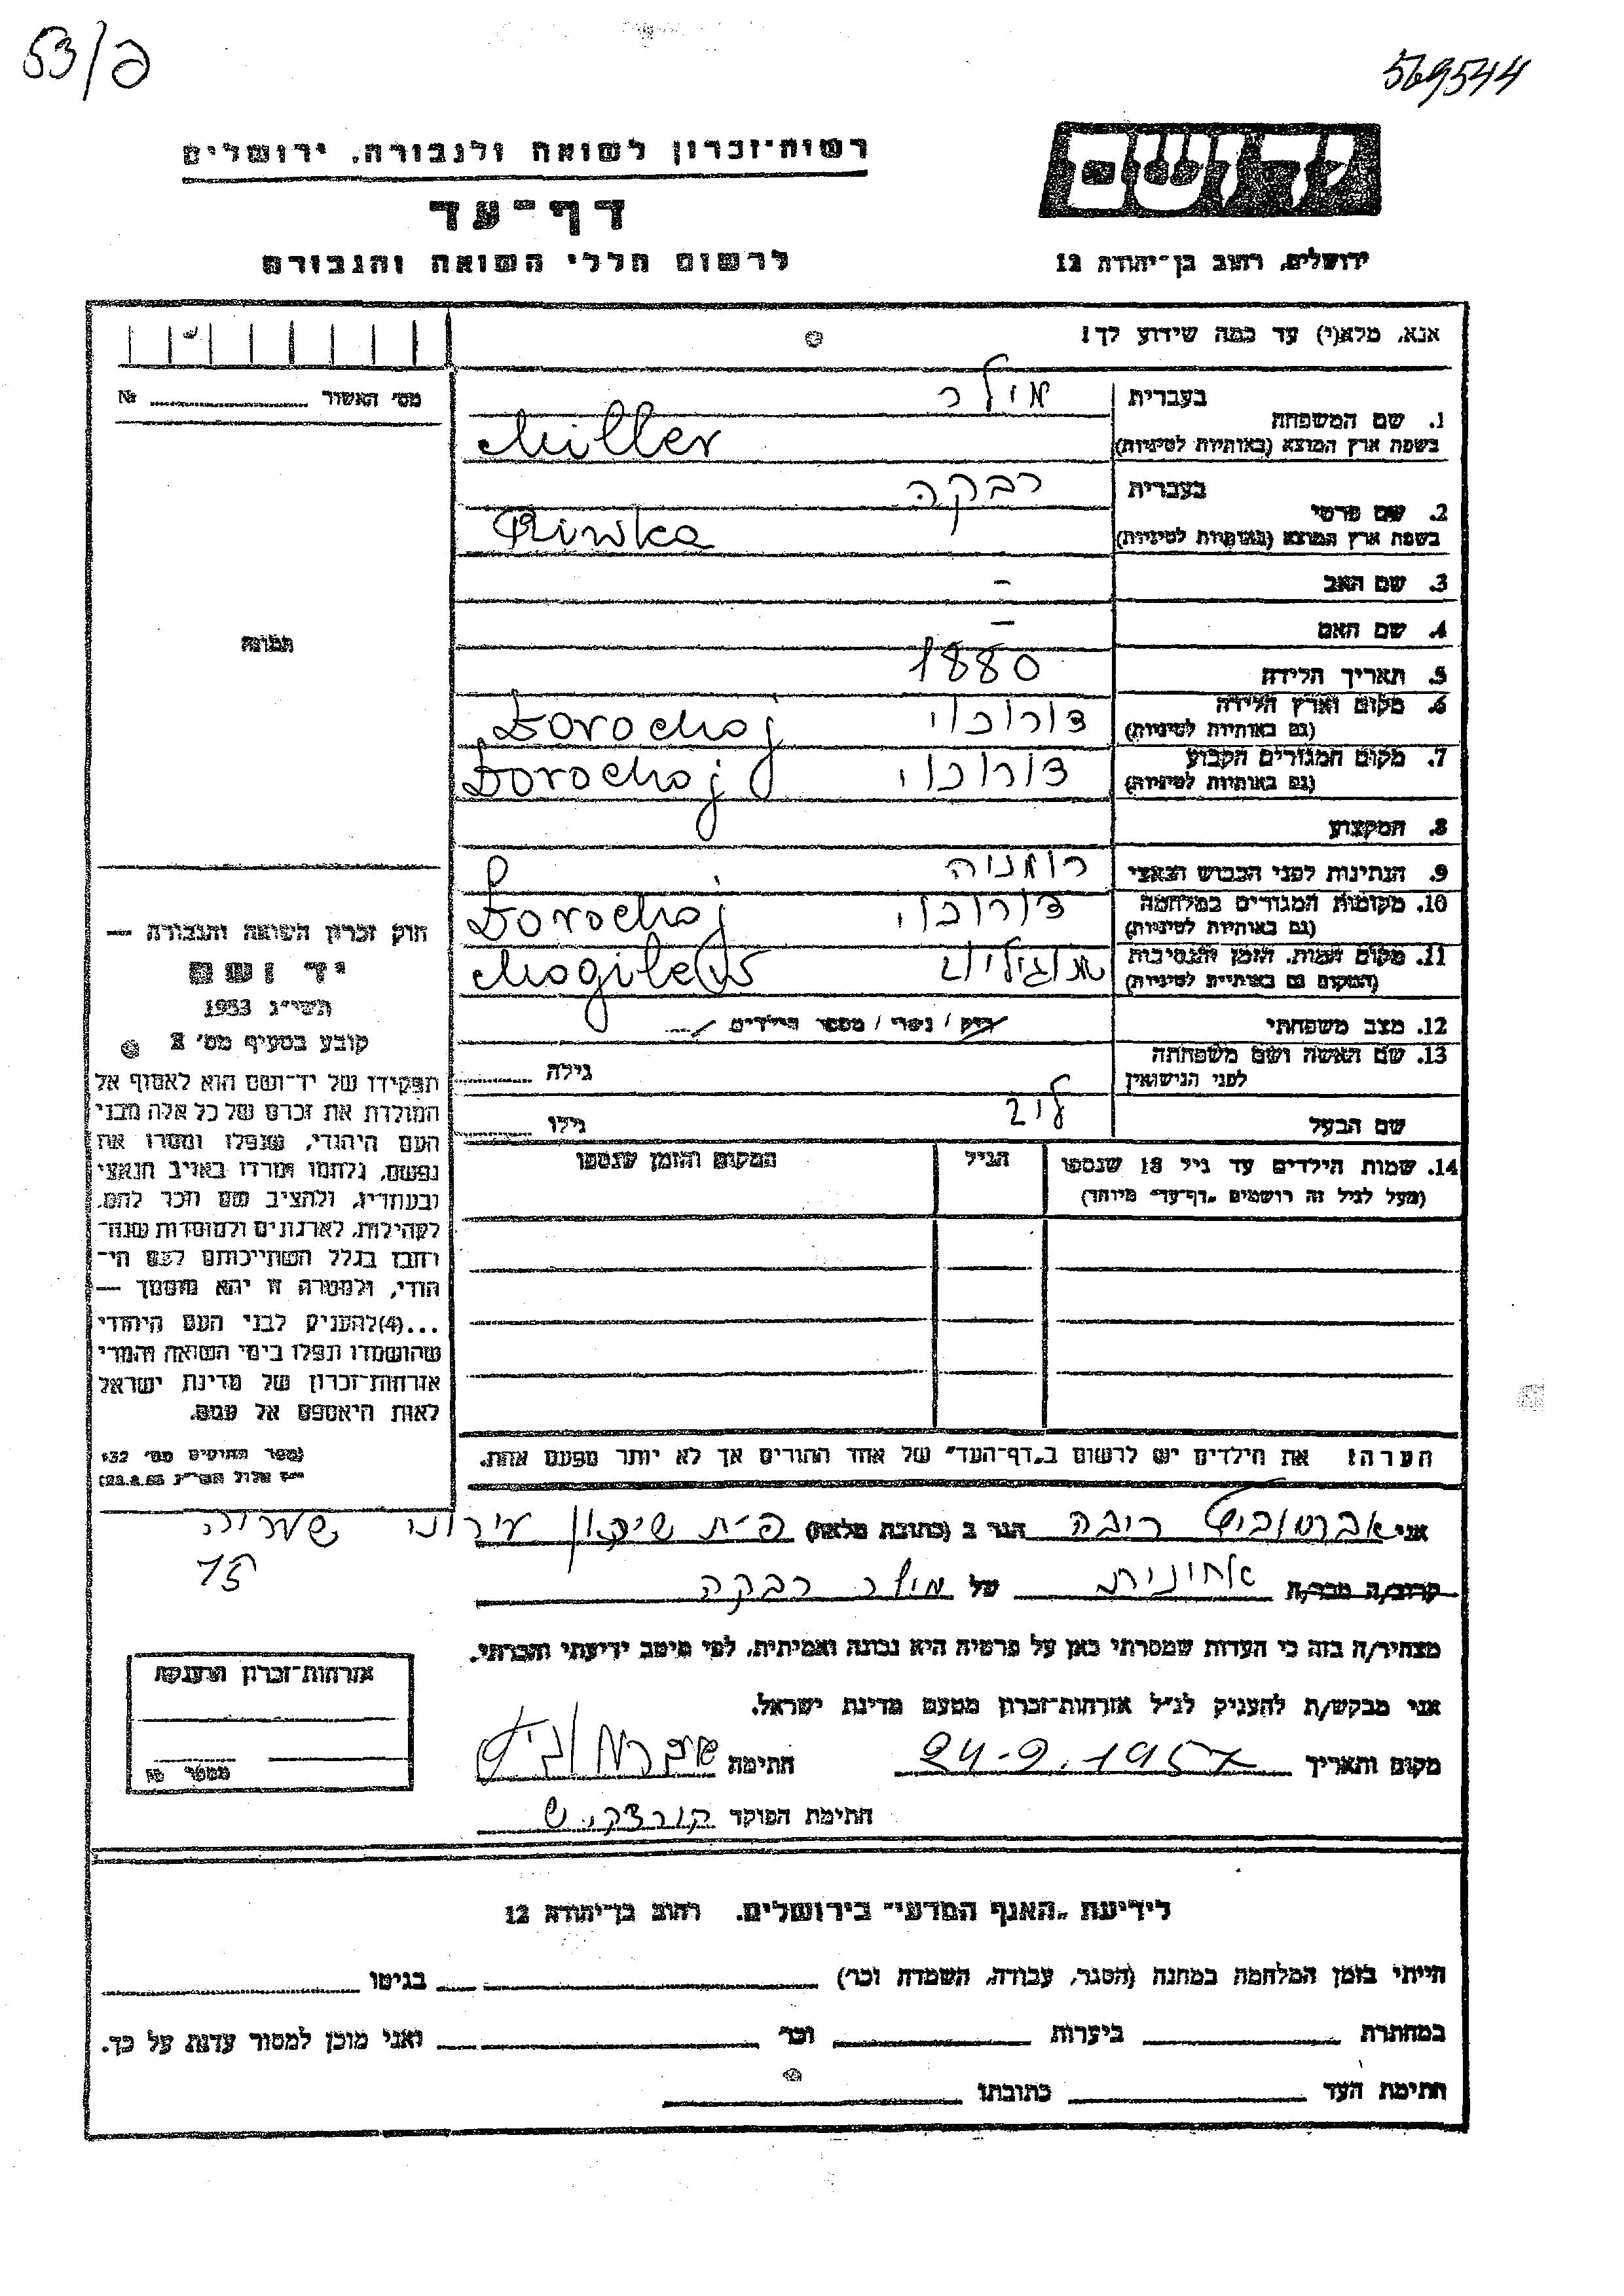 53/פ
569544
רשות־זכרון לשואה ולגבורה, ירושלים
דף־עד
לרשום חללי השואה והגבורה
יד ושם
ירושלים, רחוב בן־יהודה 12
אנא, מלא(י) עד כמה שידוע לך!
מס׳ האשור № 
תמונה
1. שם המשפחה
בעברית מילר
בשפת ארץ המוצא (באותיות לטיניות) Miller
2. שם פרטי
בעברית רבקה
בשפת ארץ המוצא (באותיות לטיניות) Riwka
3. שם האב –
4. שם האם –
5. תאריך הלידה 1880
6. מקום וארץ הלידה דורוכוי Dorochoj
(גם באותיות לטיניות)
7. מקום המגורים הקבוע דורוכוי Dorochoj
(גם באותיות לטיניות)
8. המקצוע
9. הנתינות לפני הכבוש הנאצי רומניה
10. מקומות המגורים במלחמה דורוכוי Dorochoj
(גם באותיות לטיניות)
11. מקום המות, הזמן והנסיבות מוגילוב
(המקום גם באותיות לטיניות)
12. מצב משפחתי רווק / נשוי / מספר הילדים
13. שם האשה ושם משפחתה
לפני הנישואין
גילה
שם הבעל לייב גילו
14. שמות הילדים עד גיל 18 שנספו
(מעל לגיל זה רושמים „דף־עד״ מיוחד)
הגיל
המקום והזמן שנספו
הערה: את הילדים יש לרשום ב„דף־העד״ של אחד ההורים אך לא יותר מפעם אחת.
חוק זכרון השואה והגבורה —
יד ושם
תשי״ג 1953
קובע בסעיף מס׳ 2
תפקידו של יד־ושם הוא לאסוף אל
המולדת את זכרם של כל אלה מבני
העם היהודי, שנפלו ומסרו את
נפשם, נלחמו ומרדו באויב הנאצי
ובעוזריו, ולהציב שם וזכר להם,
לקהילות, לארגונים ולמוסדות שנח־
רחבו בגלל השתייכותם לעם הי־
הודי, ולמטרה זו יהא מוסמך —
...(4) להעניק לבני העם היהודי
שהושמדו ונפלו בימי השואה והמרי
אזרחות־זכרון של מדינת ישראל
לאות היאספם אל עמם.
(ספר החוקים מס׳ 132
אני אברמוביץ ריבה הגר ב (כתובת מלאה) פ״ת שיכון עירוני שעריה
15
קרוב/ה מכר/ה אחיינית של מילר רבקה
מצהיר/ה בזה כי העדות שמסרתי כאן על פרטיה היא נכונה ואמיתית, לפי מיטב ידיעתי והכרתי.
אני מבקש/ת להעניק לנ״ל אזרחות־זכרון מטעם מדינת ישראל.
מקום ותאריך 24.9.1957 חתימה אברמוביץ
חתימת הפוקד
אזרחות־זכרון הוענקה
מספר
לידיעת „האגף המדעי״ בירושלים, רחוב בן־יהודה 12
הייתי בזמן המלחמה במחנה (הסגר, עבודה, השמדה וכו׳) בגיטו
במחתרת ביערות וכו׳ ואני מוכן למסור עדות על כך.
חתימת העד כתובתו